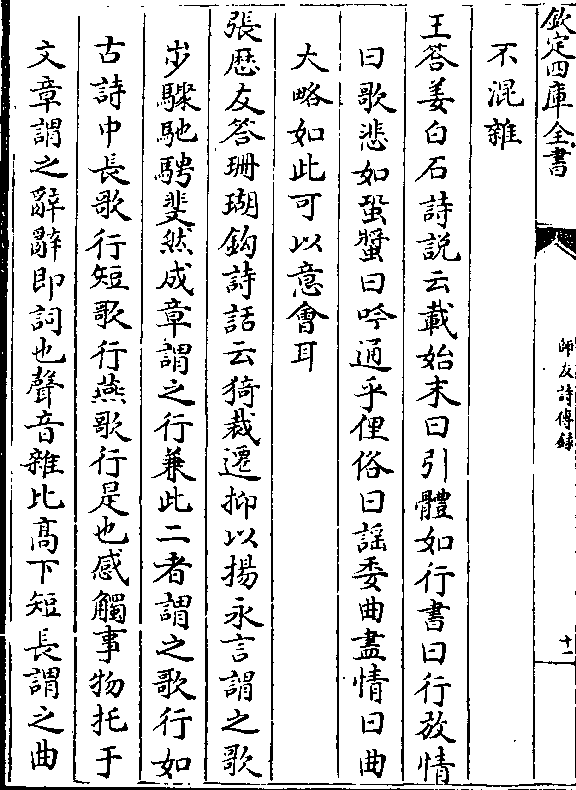 欽定四庫全書
師友詩傳錄
十一
不混雜
王答姜白石詩説云載始末曰引體如行書曰行放情
曰歌悲如蛩螿曰吟通乎俚俗曰謡委曲盡情曰曲
大略如此可以意會耳
張歴友答珊瑚鈎詩話云猗裁遷抑以揚永言謂之歌
步驟馳騁斐然成章謂之行兼此二者謂之歌行如
古詩中長歌行短歌行燕歌行是也感觸事物托于
文章謂之辭辭即詞也聲音雜比髙下短長謂之曲